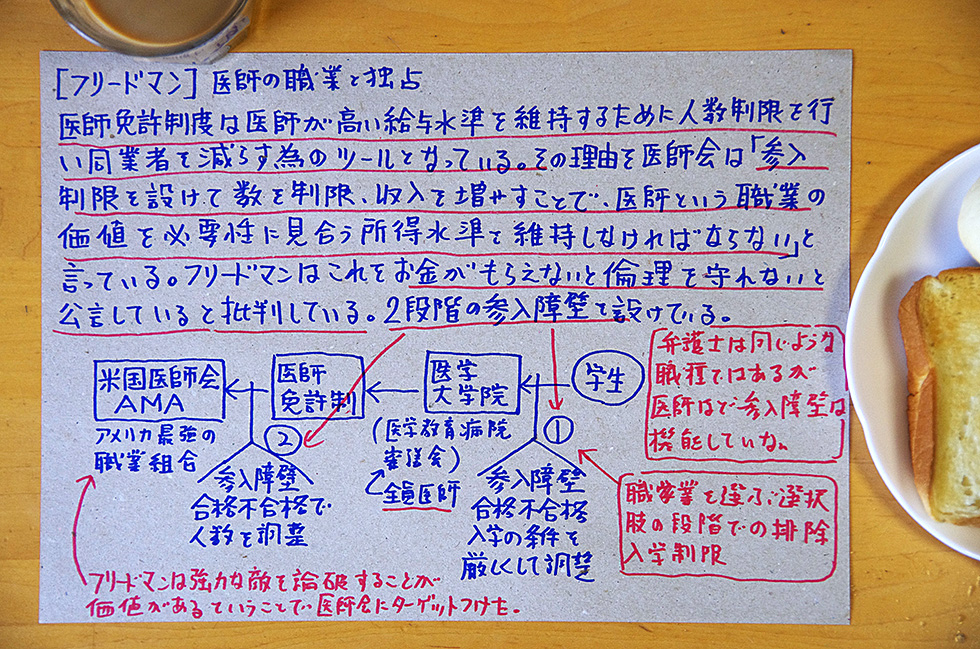 [フリードマン] 医師の職業と独占
医師免許制度は医師が高い給与水準を維持するために人数制限を行
い同業者を減らす為のツールとなっている。その理由を医師会は「参入
制限を設けて数を制限、収入を増やすことで、医師という職業の
価値を必要性に見合う所得水準を維持しなければならない」と
言っている。フリードマンはこれをお金がもらえないと倫理を守れないと
公言していると批判している。2段階の参入障壁を設けている。
米国医師会
AMA
アメリカ最強の
職業組合
医師
免許制
②
参入障壁
合格不合格で
人数を調整
医学
大学院
(医学教育病院
審議会)
全員医師
学生
①
参入障壁
合格不合格
入学の条件を
厳しくして調整
弁護士は同じような
職種ではあるが
医師ほど参入障壁は
機能していない
職業を選ぶ選択
肢の段階での排除
入学制限
フリードマンは強力な敵を論破することが
価値があるということで医師会にターゲットつけた。